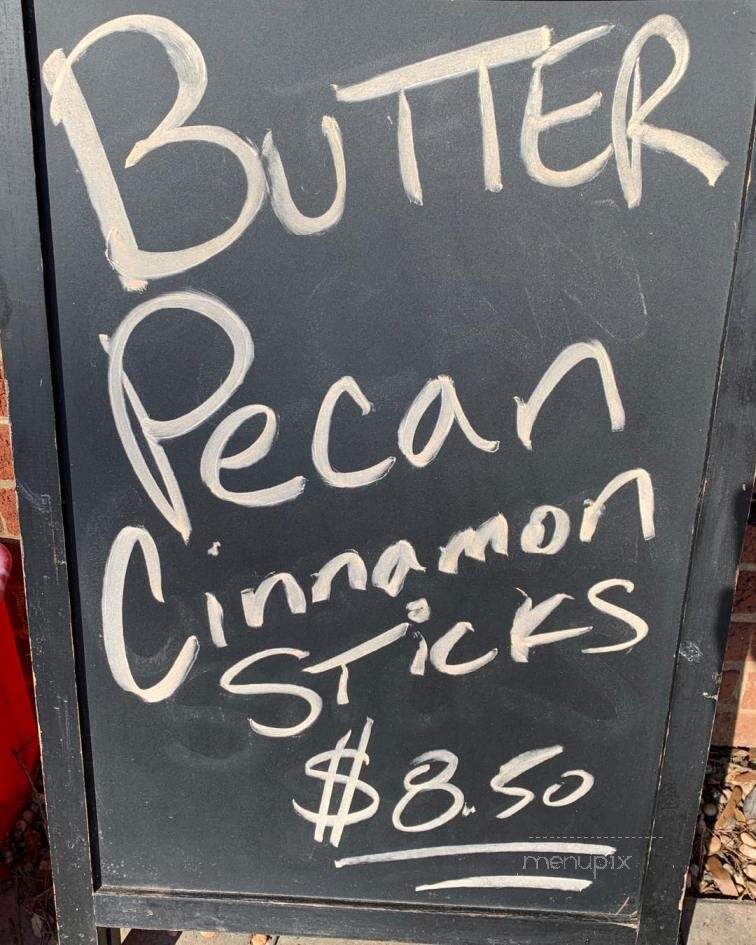 BuTTER
Pecan
Cinnamon
STicKS
$8.50
menupix